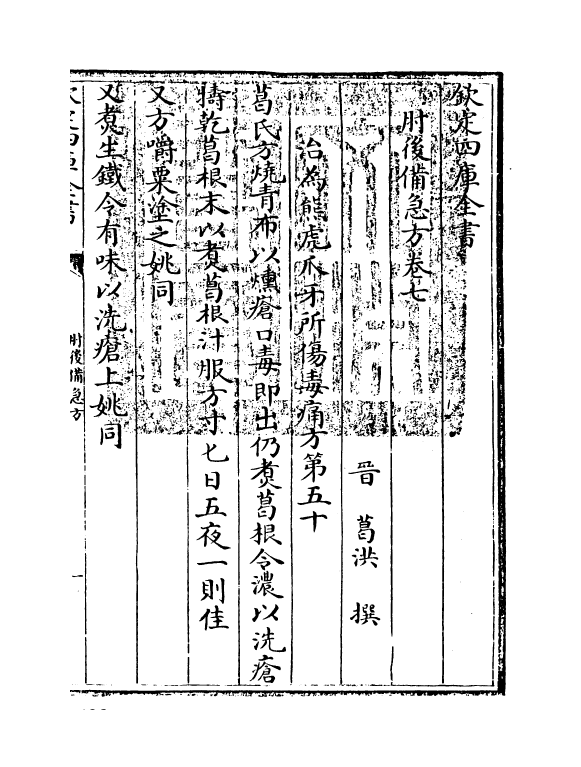 欽定四庫全書
肘後備急方卷七
晉 葛洪 撰
治為熊虎爪牙所傷毒痛方第五十
葛氏方燒青布以燻瘡口毒即出仍煑葛根令濃以洗瘡
擣乾葛根末以煑葛根汁服方寸匕日五夜一則佳
又方嚼栗塗之姚同
又煑生鐵令有味以洗瘡上姚同
欽定四庫全書
肘後備急方
一